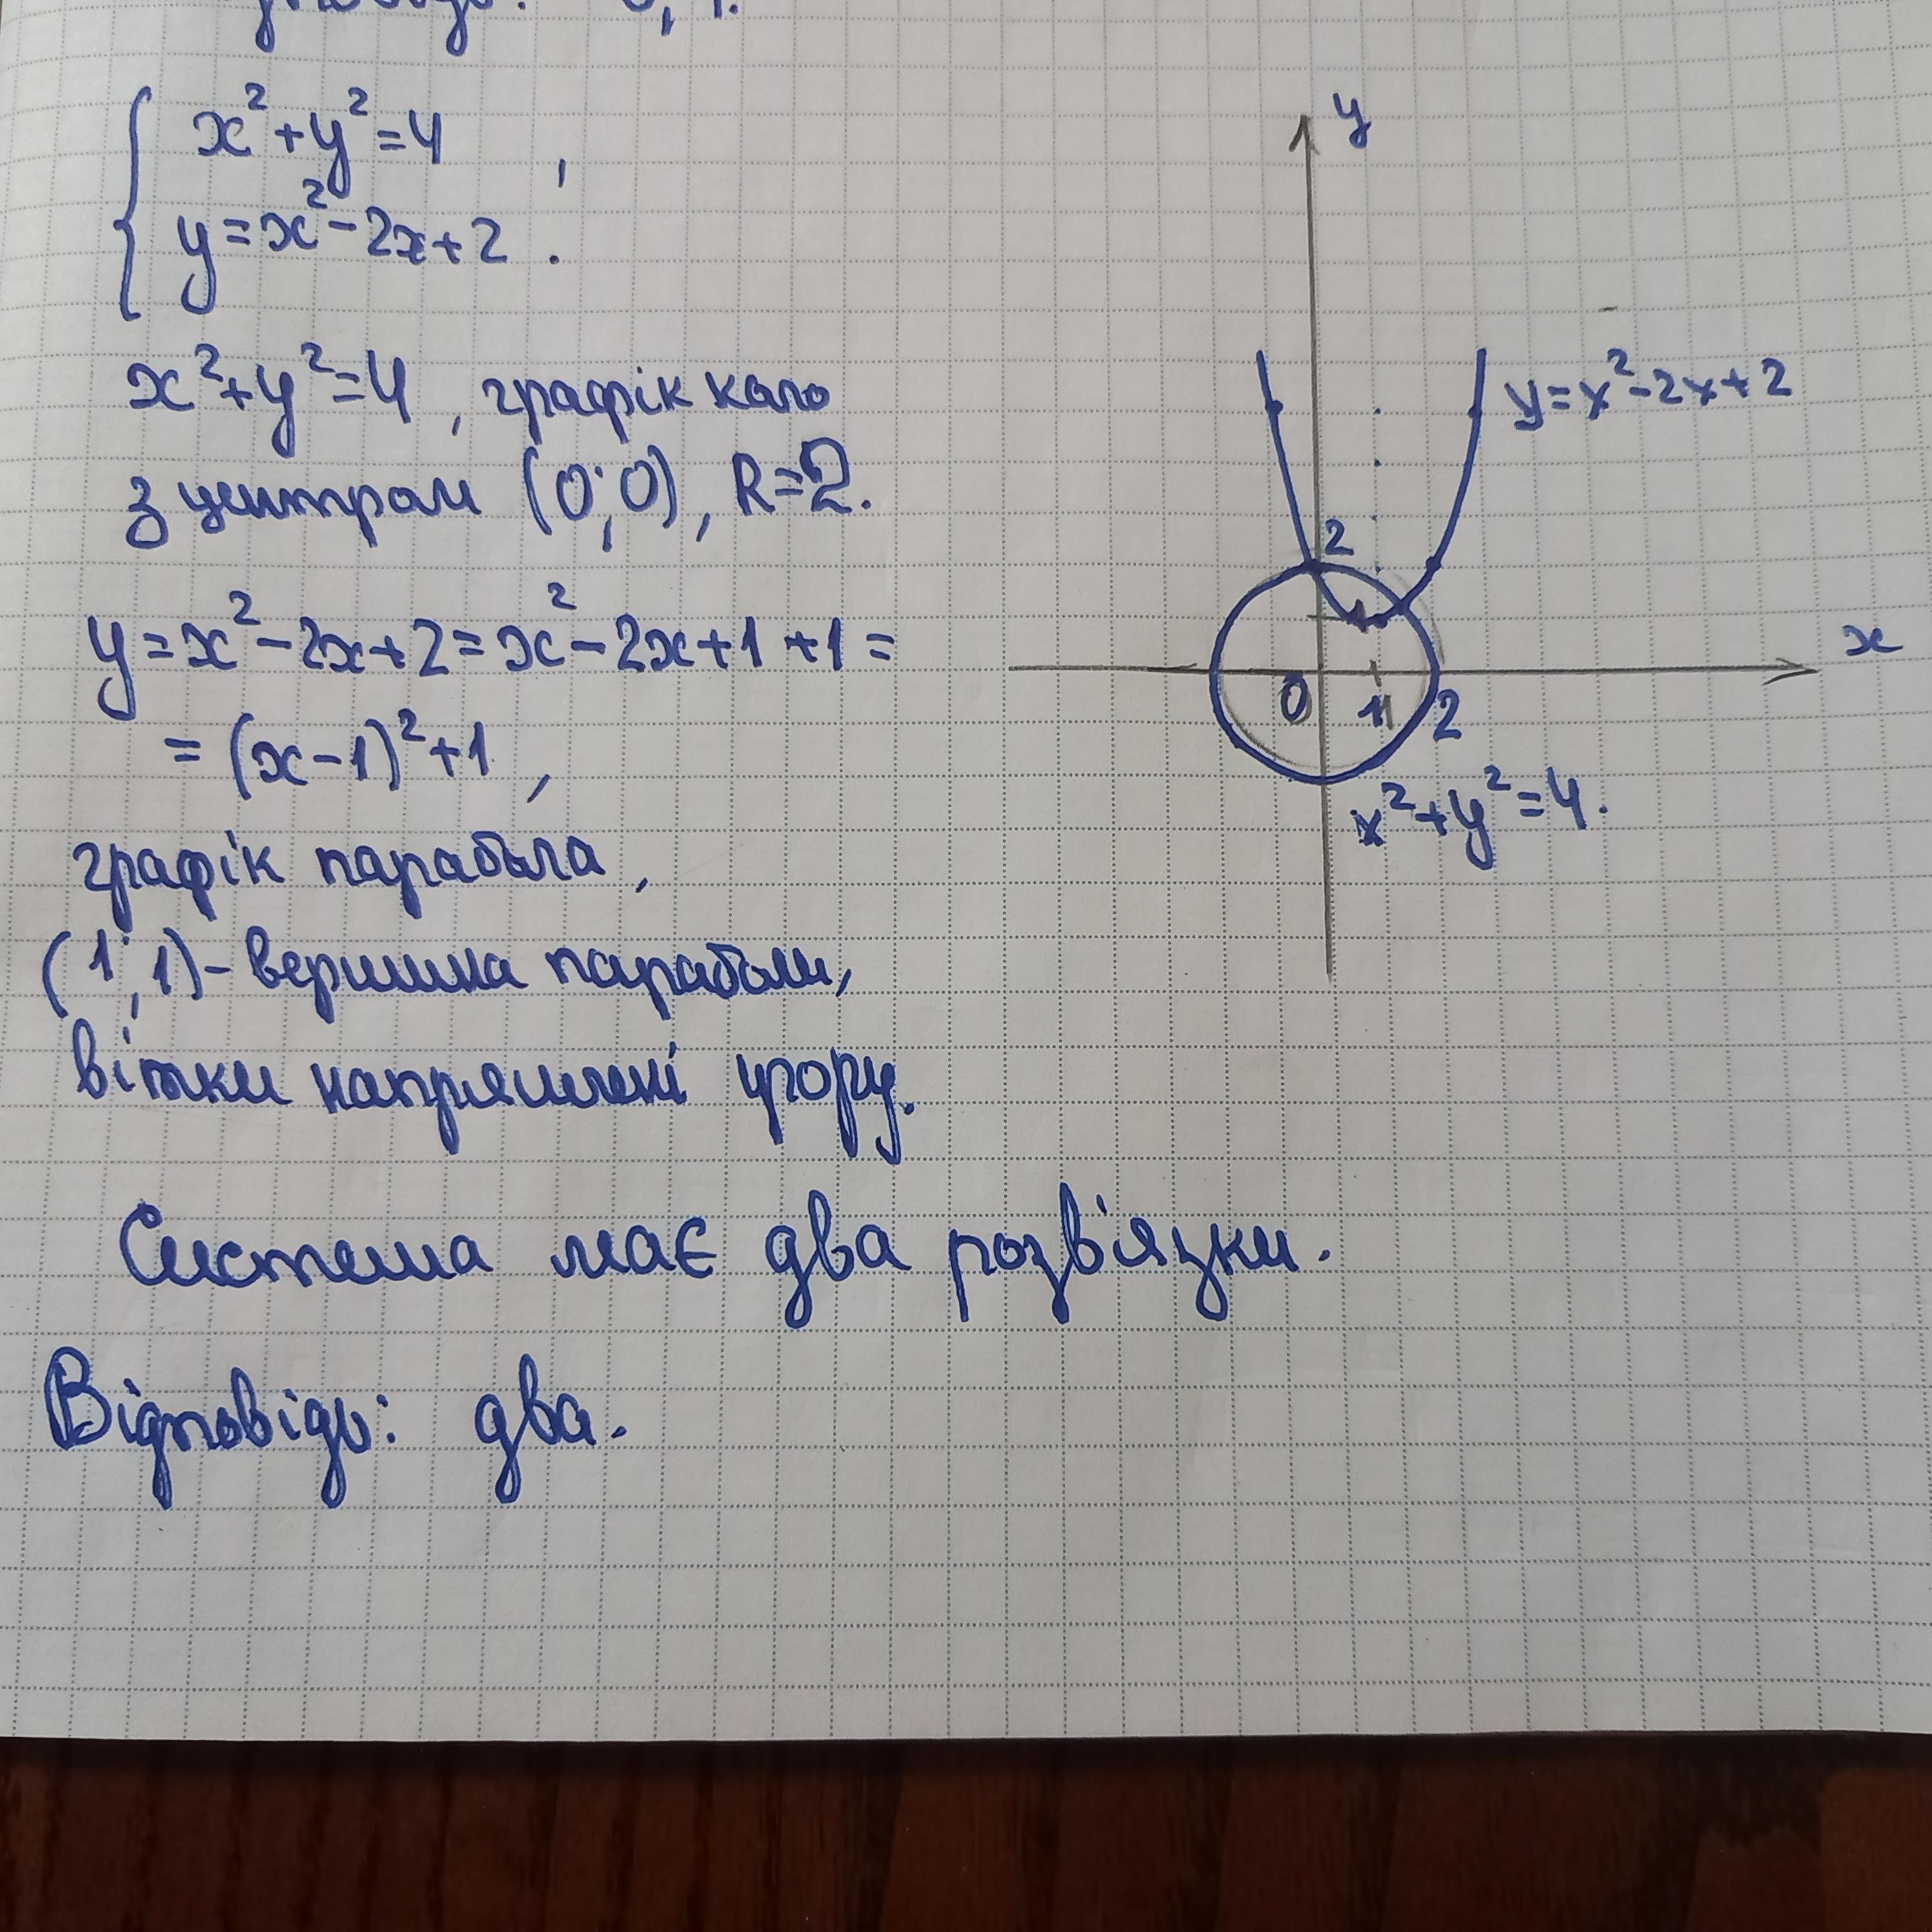 { x²+y²=4 ,
y=x²-2x+2 .
x²+y²=4, графік коло
з центром (0;0), R=2.
y=x²-2x+2=x²-2x+1+1=
=(x-1)²+1,
графік парабола,
(1;1)-вершина параболи,
вітки напрямлені угору.
y
y=x²-2x+2
2
x
0
1
2
x²+y²=4.
Система має два розв'язки.
Відповідь: два.